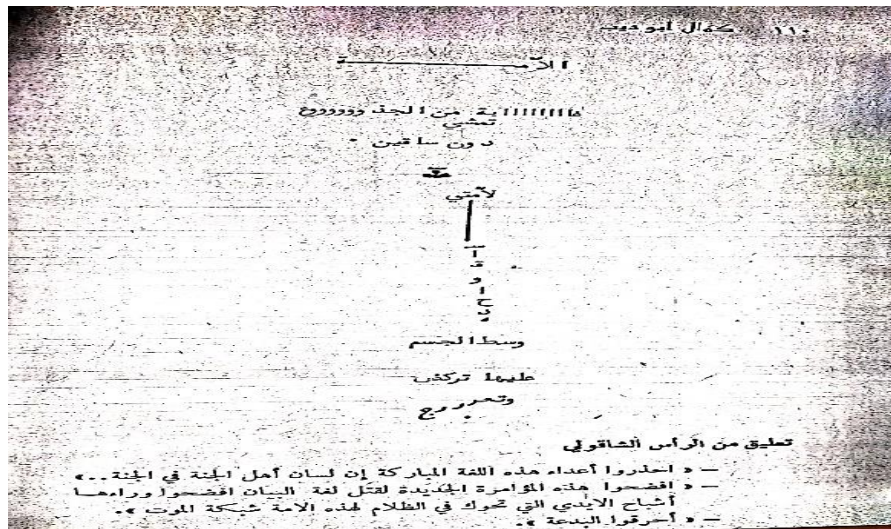 ١١٠ كمال أبو ديب
الأمـــــــــــــة
غااااااااابة من الجذ وووووع
تمشي
دون ساقين .
لأمتي
سـ
ا
ق
و
ا
حـ
د
وسط الجسم
عليها تركض
وتعرررج
تعليق من الرأس الشاقولي
– « احذروا أعداء هذه اللغة المباركة إن لسان أهل الجنة في الجنة ..»
– « افضحوا هذه المؤامرة الجديدة لقتل لغة البيان افضحوا وراءهــا
أشباح الايدي التي تحوك في الظلام لهذه الامة شبكة الموت ».
– « أحرقوا البدعة ».